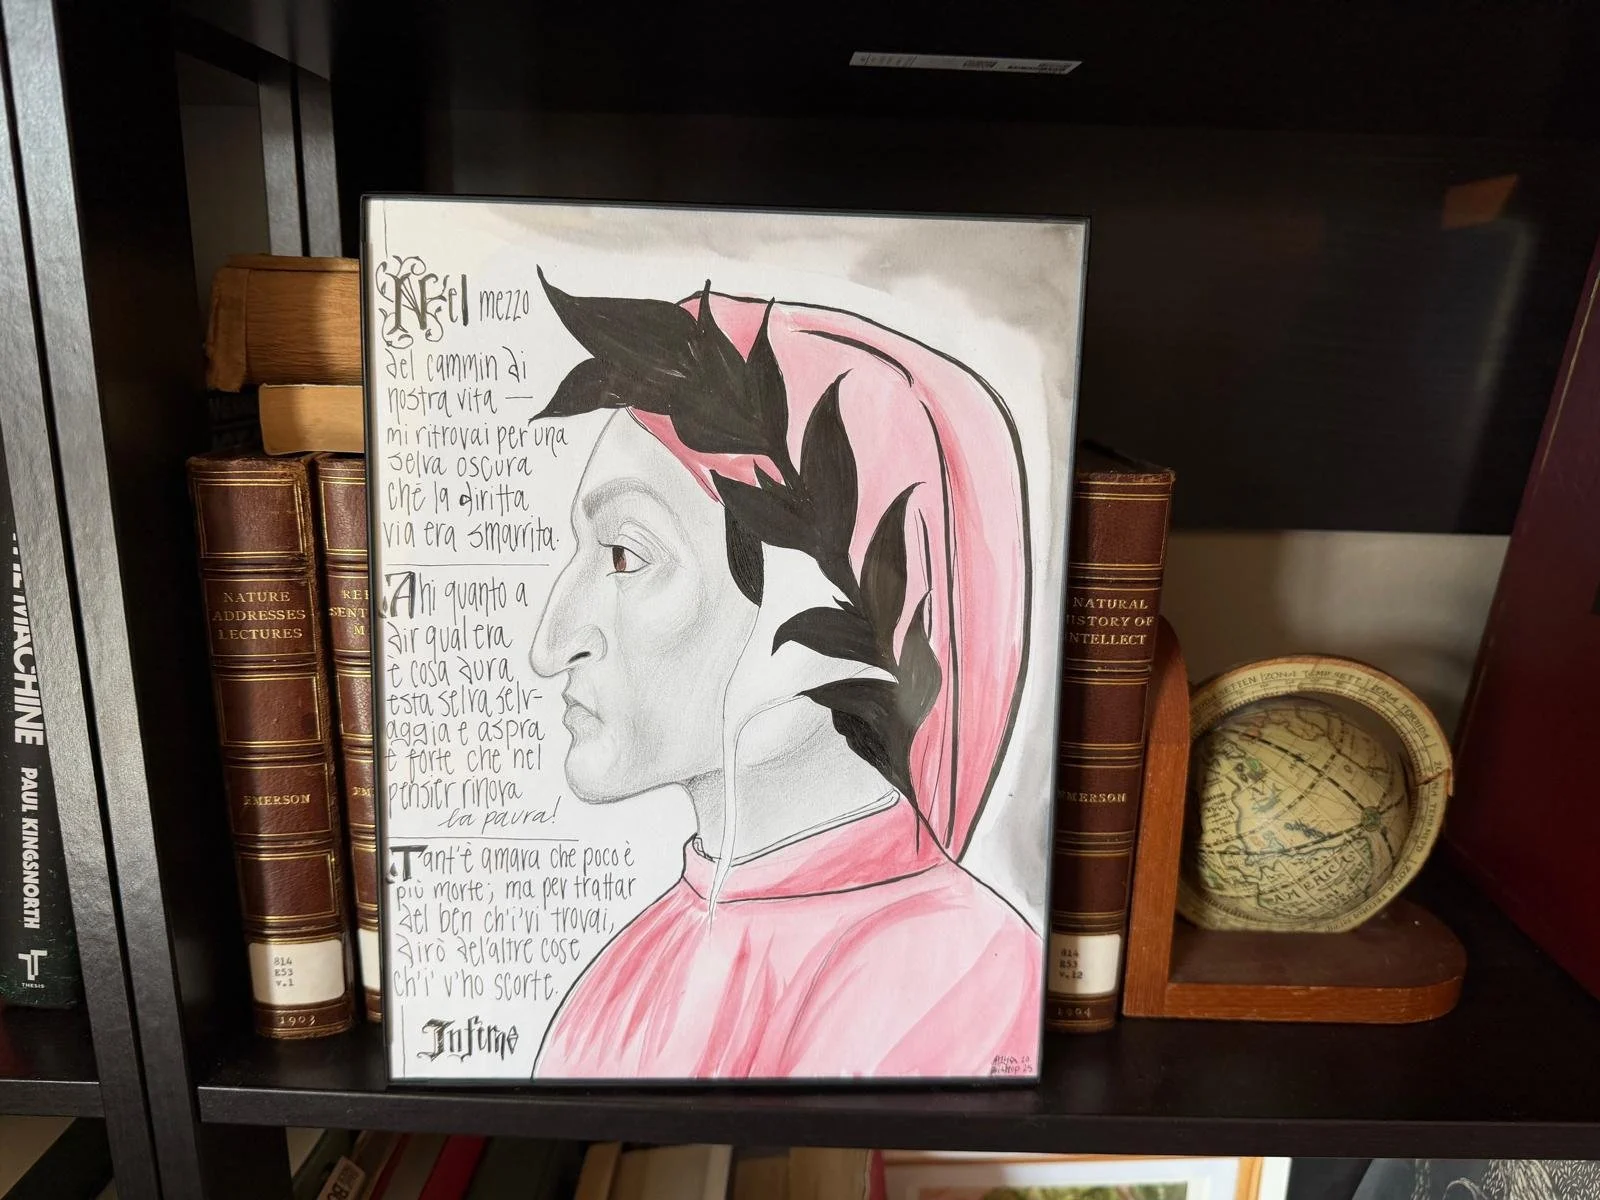 Nel mezzo
del cammin di
nostra vita —
mi ritrovai per una
selva oscura
ché la diritta
via era smarrita.
Ahi quanto a
dir qual era
è cosa dura
esta selva selv-
aggia e aspra
e forte che nel
pensier rinova
la paura!
Tant'è amara che poco è
più morte; ma per trattar
del ben ch'i'vi trovai,
dirò de l'altre cose
ch'i' v'ho scorte.
Inferno
MACHINE
PAUL KINGSNORTH
THESIS
NATURE
ADDRESSES
LECTURES
EMERSON
814
E53
v.1
1903
NATURAL
HISTORY OF
INTELLECT
EMERSON
814
E53
v.12
1904
AMERICA